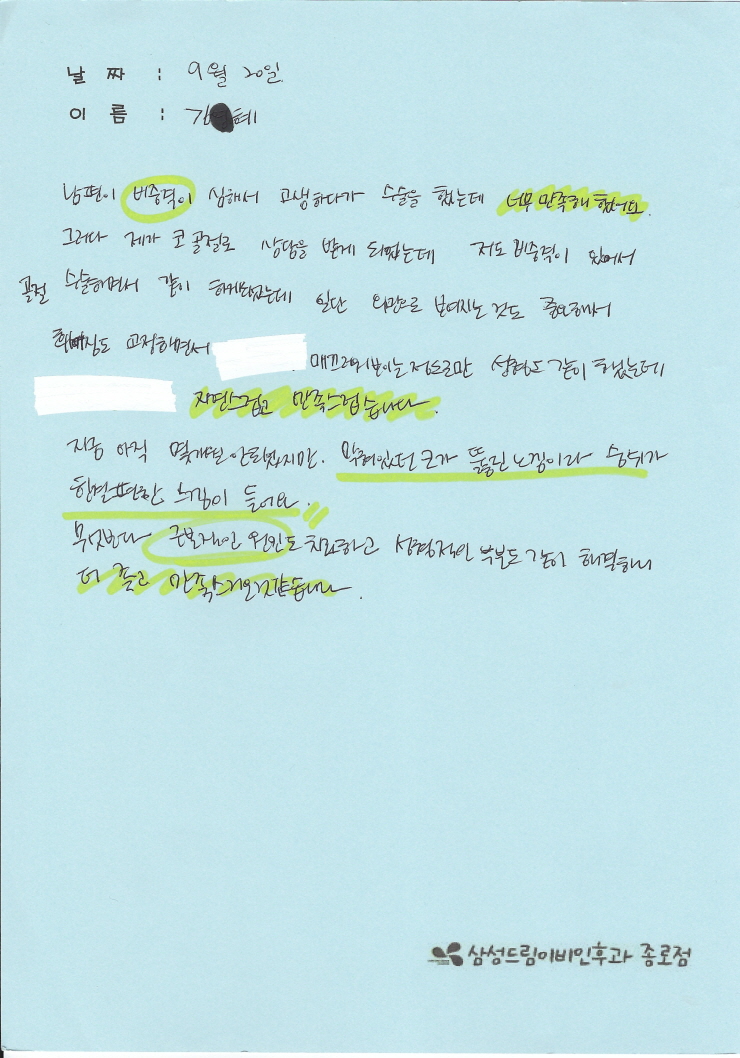 날 짜 : 9월 20일
이 름 : 김 혜
남편이 비중격이 심해서 고생하다가 수술을 했는데 너무 만족해 했어요.
그러다 제가 코 골절로 상담을 받게 되었는데 저도 비중격이 있어서
골절 수술하면서 같이 하게되었는데 일단 외관으로 보여지는 것도 중요해서
휘어짐도 교정해면서 매끄러워보이는 정도로만 성형도 같이 하였는데
자연스럽고 만족스럽습니다.
지금 아직 몇개월 안되었지만. 막혀있던 코가 뚫린 느낌이라 숨쉬기가
한결 편한 느낌이 들어요.
무엇보다 근본적인 원인도 치료하고 성형적인 부분도 같이 해결하니
더 좋고 만족스러운것같습니다.
삼성드림이비인후과 종로점